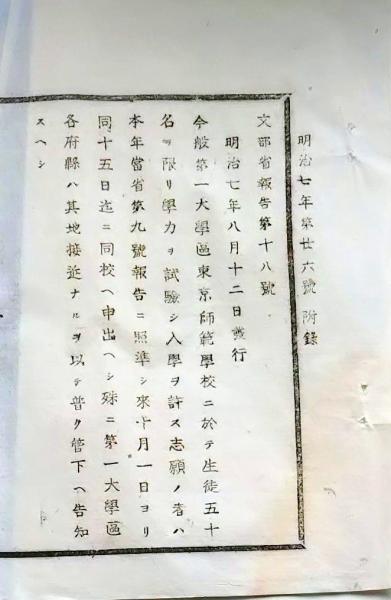 明治七年第廿六號附錄
文部省報告第十八號
明治七年八月十二日發行
今般第一大學區東京師範學校ニ於テ生徒五十
名ヲ限リ學力ヲ試驗シ入學ヲ許ス志願ノ者ハ
本年當省第九號報告ニ照準シ來十月一日ヨリ
同十五日迄ニ同校ヘ申出ヘシ殊ニ第一大學區
各府縣ハ其地接近ナルヲ以テ普ク管下ヘ告知
スヘシ